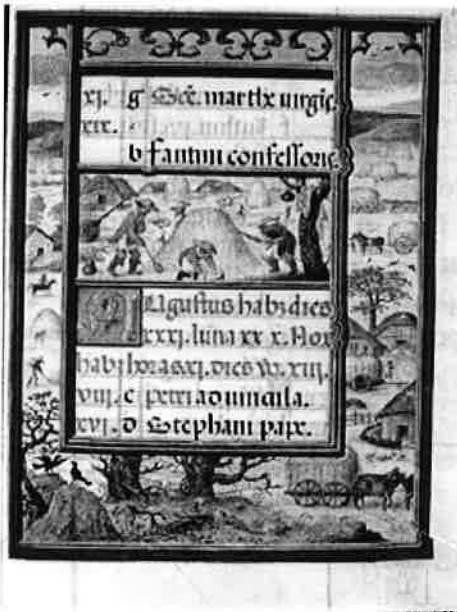 xj. g Sce. marthe uirgis.
xix.
b fantini confessoris.
Augustus habz dies
xxxj. luna xx x. Nox
habz horas xj. dies vo. xiij.
viij. c petri ad uincula.
xvj. d Stephani pape.